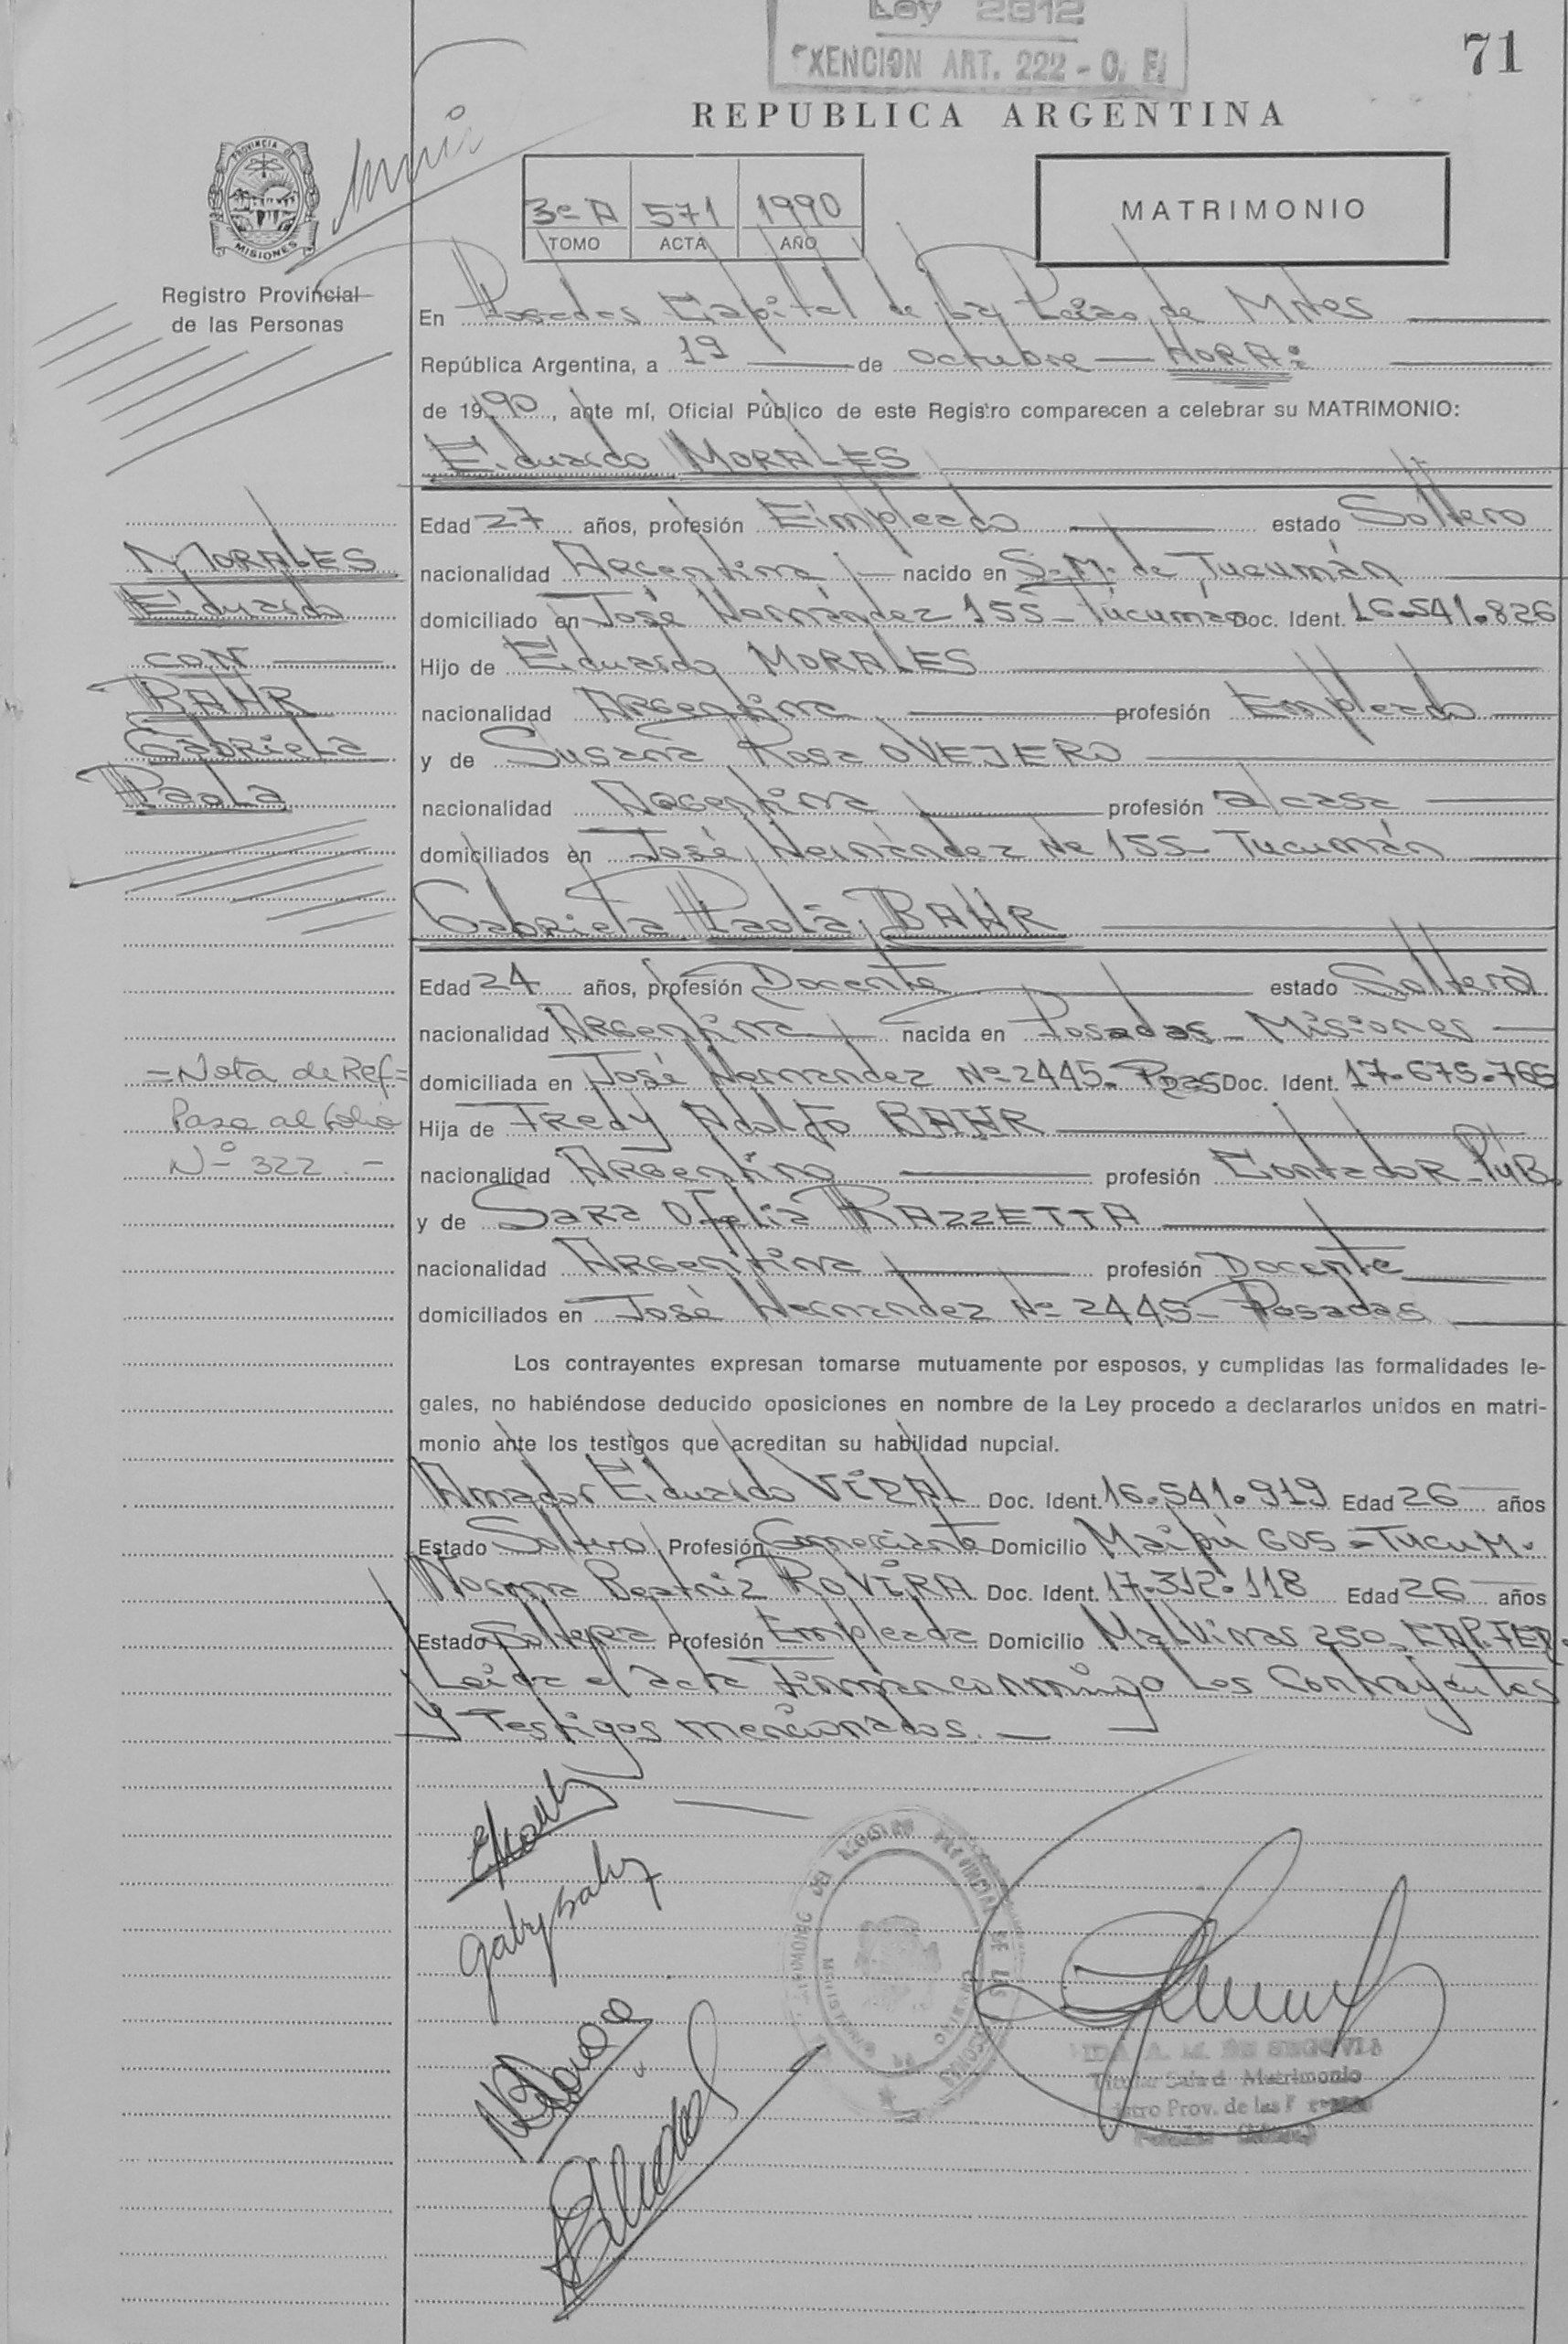 Ley 2312
EXENCION ART. 222 - O. F.
71
REPUBLICA ARGENTINA
PROVINCIA D
MISIONES
Registro Provincial
de las Personas
3º A 571 1990
TOMO ACTA AÑO
MATRIMONIO
En Posadas Capital de la Pcia de Mnes
República Argentina, a 19 de Octubre HORA:
de 1990, ante mí, Oficial Público de este Registro comparecen a celebrar su MATRIMONIO:
Eduardo MORALES
Edad 27 años, profesión Empleado estado Soltero
nacionalidad Argentina nacido en S. M. de Tucumán
domiciliado en José Hernández 155 - Tucumán Doc. Ident. 16.541.826
Hijo de Eduardo MORALES
nacionalidad Argentina profesión Empleado
y de Susana Rosa OVEJERO
nacionalidad Argentina profesión a/casa
domiciliados en José Hernández Nº 155 - Tucumán
MORALES
Eduardo
CON
BAHR
Gabriela
Paola
Gabriela Paola BAHR
Edad 24 años, profesión Docente estado Soltera
nacionalidad Argentina nacida en Posadas - Misiones
domiciliada en José Hernandez Nº 2445 - Pdas Doc. Ident. 17.675.765
Hija de Fredy Adolfo BAHR
nacionalidad Argentino profesión Contador Púb.
y de Sara Ofelia RAZZETTA
nacionalidad Argentina profesión Docente
domiciliados en José Hernandez Nº 2445 - Posadas
- Nota de Ref =
Pase al folio
Nº 322 . -
Los contrayentes expresan tomarse mutuamente por esposos, y cumplidas las formalidades le-
gales, no habiéndose deducido oposiciones en nombre de la Ley procedo a declararlos unidos en matri-
monio ante los testigos que acreditan su habilidad nupcial.
Amador Eduardo VIDAL Doc. Ident. 16.541.919 Edad 26 años
Estado Soltero Profesión Comerciante Domicilio Maipú 605 - TUCUM.
Norma Beatriz ROVIRA Doc. Ident. 17.312.118 Edad 26 años
Estado Soltera Profesión Empleada Domicilio Malvinas 250 - CAP. FED.
Leida el acta firman conmigo los Contrayentes
y Testigos mencionados. -
Gaby Bahr
A. M. DE SEGOVIA
Titular Sala d Matrimonio
Prov. de las